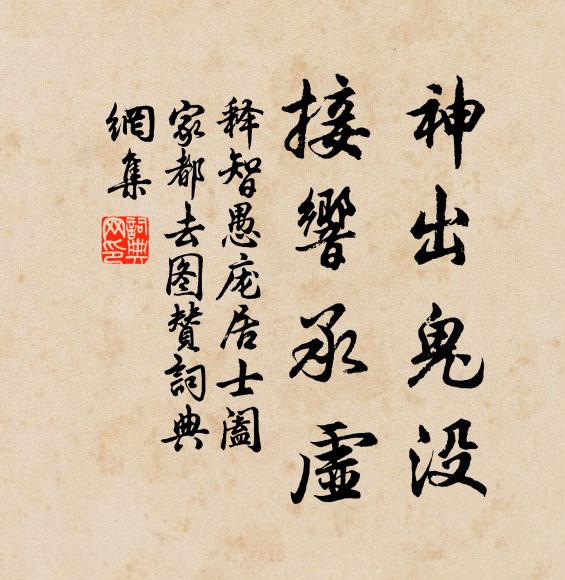 神出鬼没
接響承虛
释智愚庞居士阖
家都去图贊詞典
網集
詞典
网印